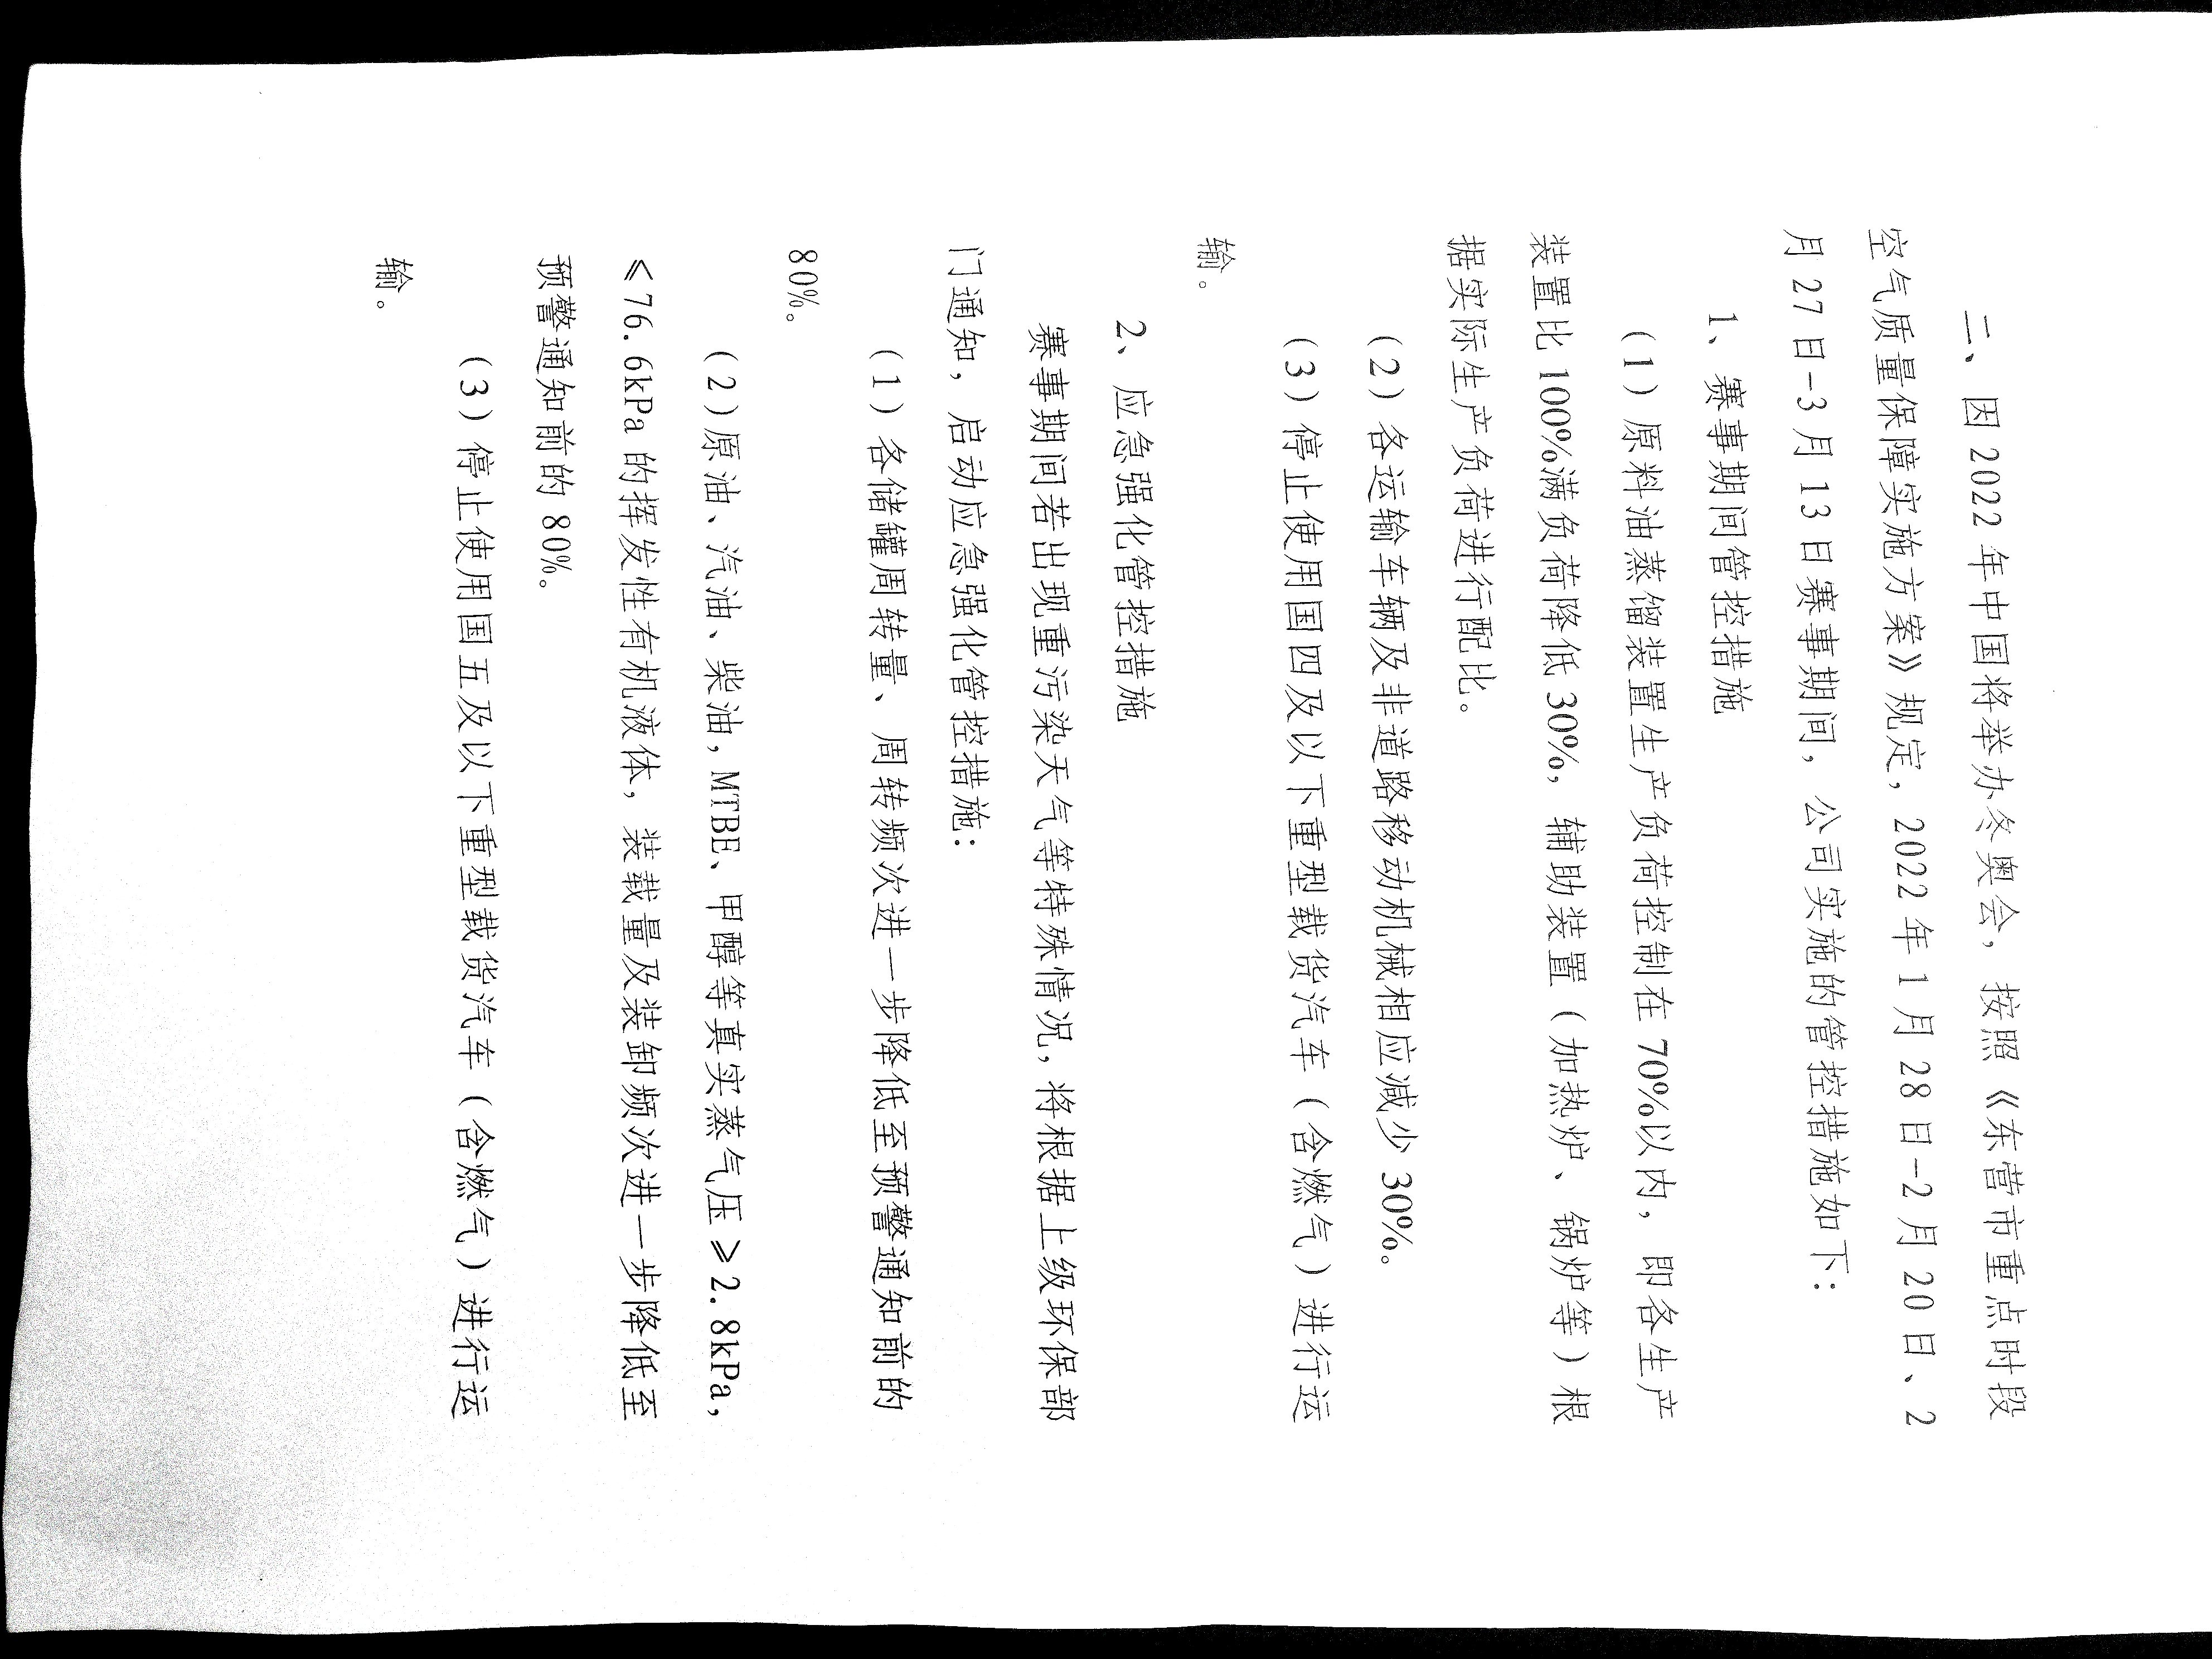 二、因 2022 年中国将举办冬奥会，按照《东营市重点时段
空气质量保障实施方案》规定，2022 年 1 月 28 日-2 月 20 日、2
月 27 日-3 月 13 日赛事期间，公司实施的管控措施如下：
1、赛事期间管控措施
（1）原料油蒸馏装置生产负荷控制在 70%以内，即各生产
装置比 100%满负荷降低 30%，辅助装置（加热炉、锅炉等）根
据实际生产负荷进行配比。
（2）各运输车辆及非道路移动机械相应减少 30%。
（3）停止使用国四及以下重型载货汽车（含燃气）进行运
输。
2、应急强化管控措施
赛事期间若出现重污染天气等特殊情况，将根据上级环保部
门通知，启动应急强化管控措施：
（1）各储罐周转量、周转频次进一步降低至预警通知前的
80%。
（2）原油、汽油、柴油，MTBE、甲醇等真实蒸气压≥2.8kPa，
≤76.6kPa 的挥发性有机液体，装载量及装卸频次进一步降低至
预警通知前的 80%。
（3）停止使用国五及以下重型载货汽车（含燃气）进行运
输。